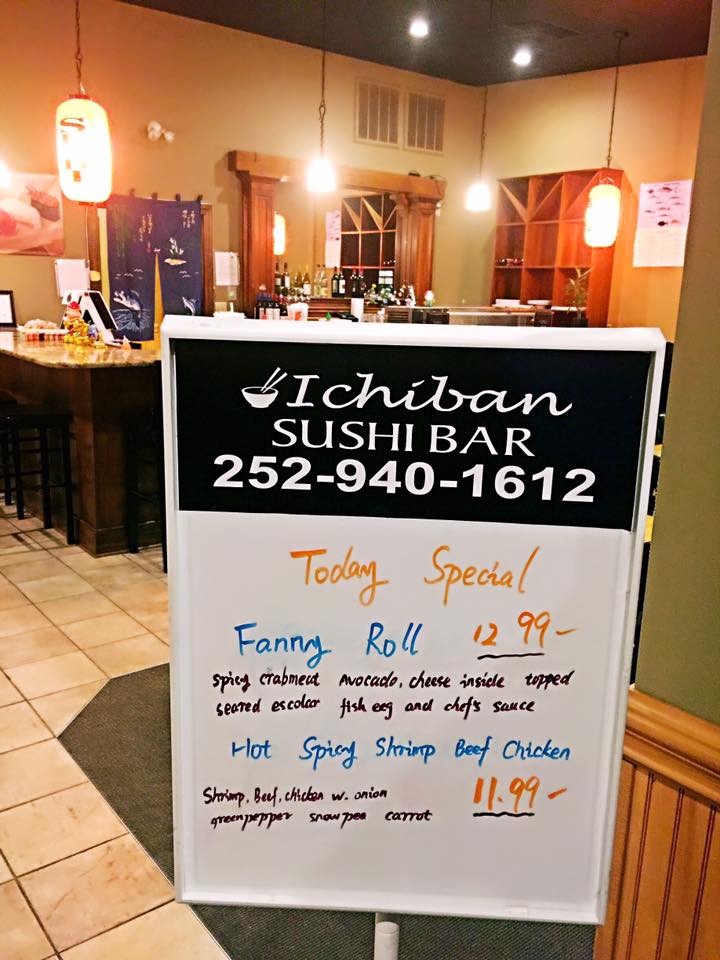 Ichiban
SUSHI BAR
252-940-1612
Today Special
Fanny Roll 12 99-
spicy crabmeat Avocado, cheese inside topped
seared escolar fish eeg and chef's sauce
Hot Spicy Shrimp Beef Chicken
Shrimp, Beef, chicken w. onion 11.99-
green pepper snow pea carrot